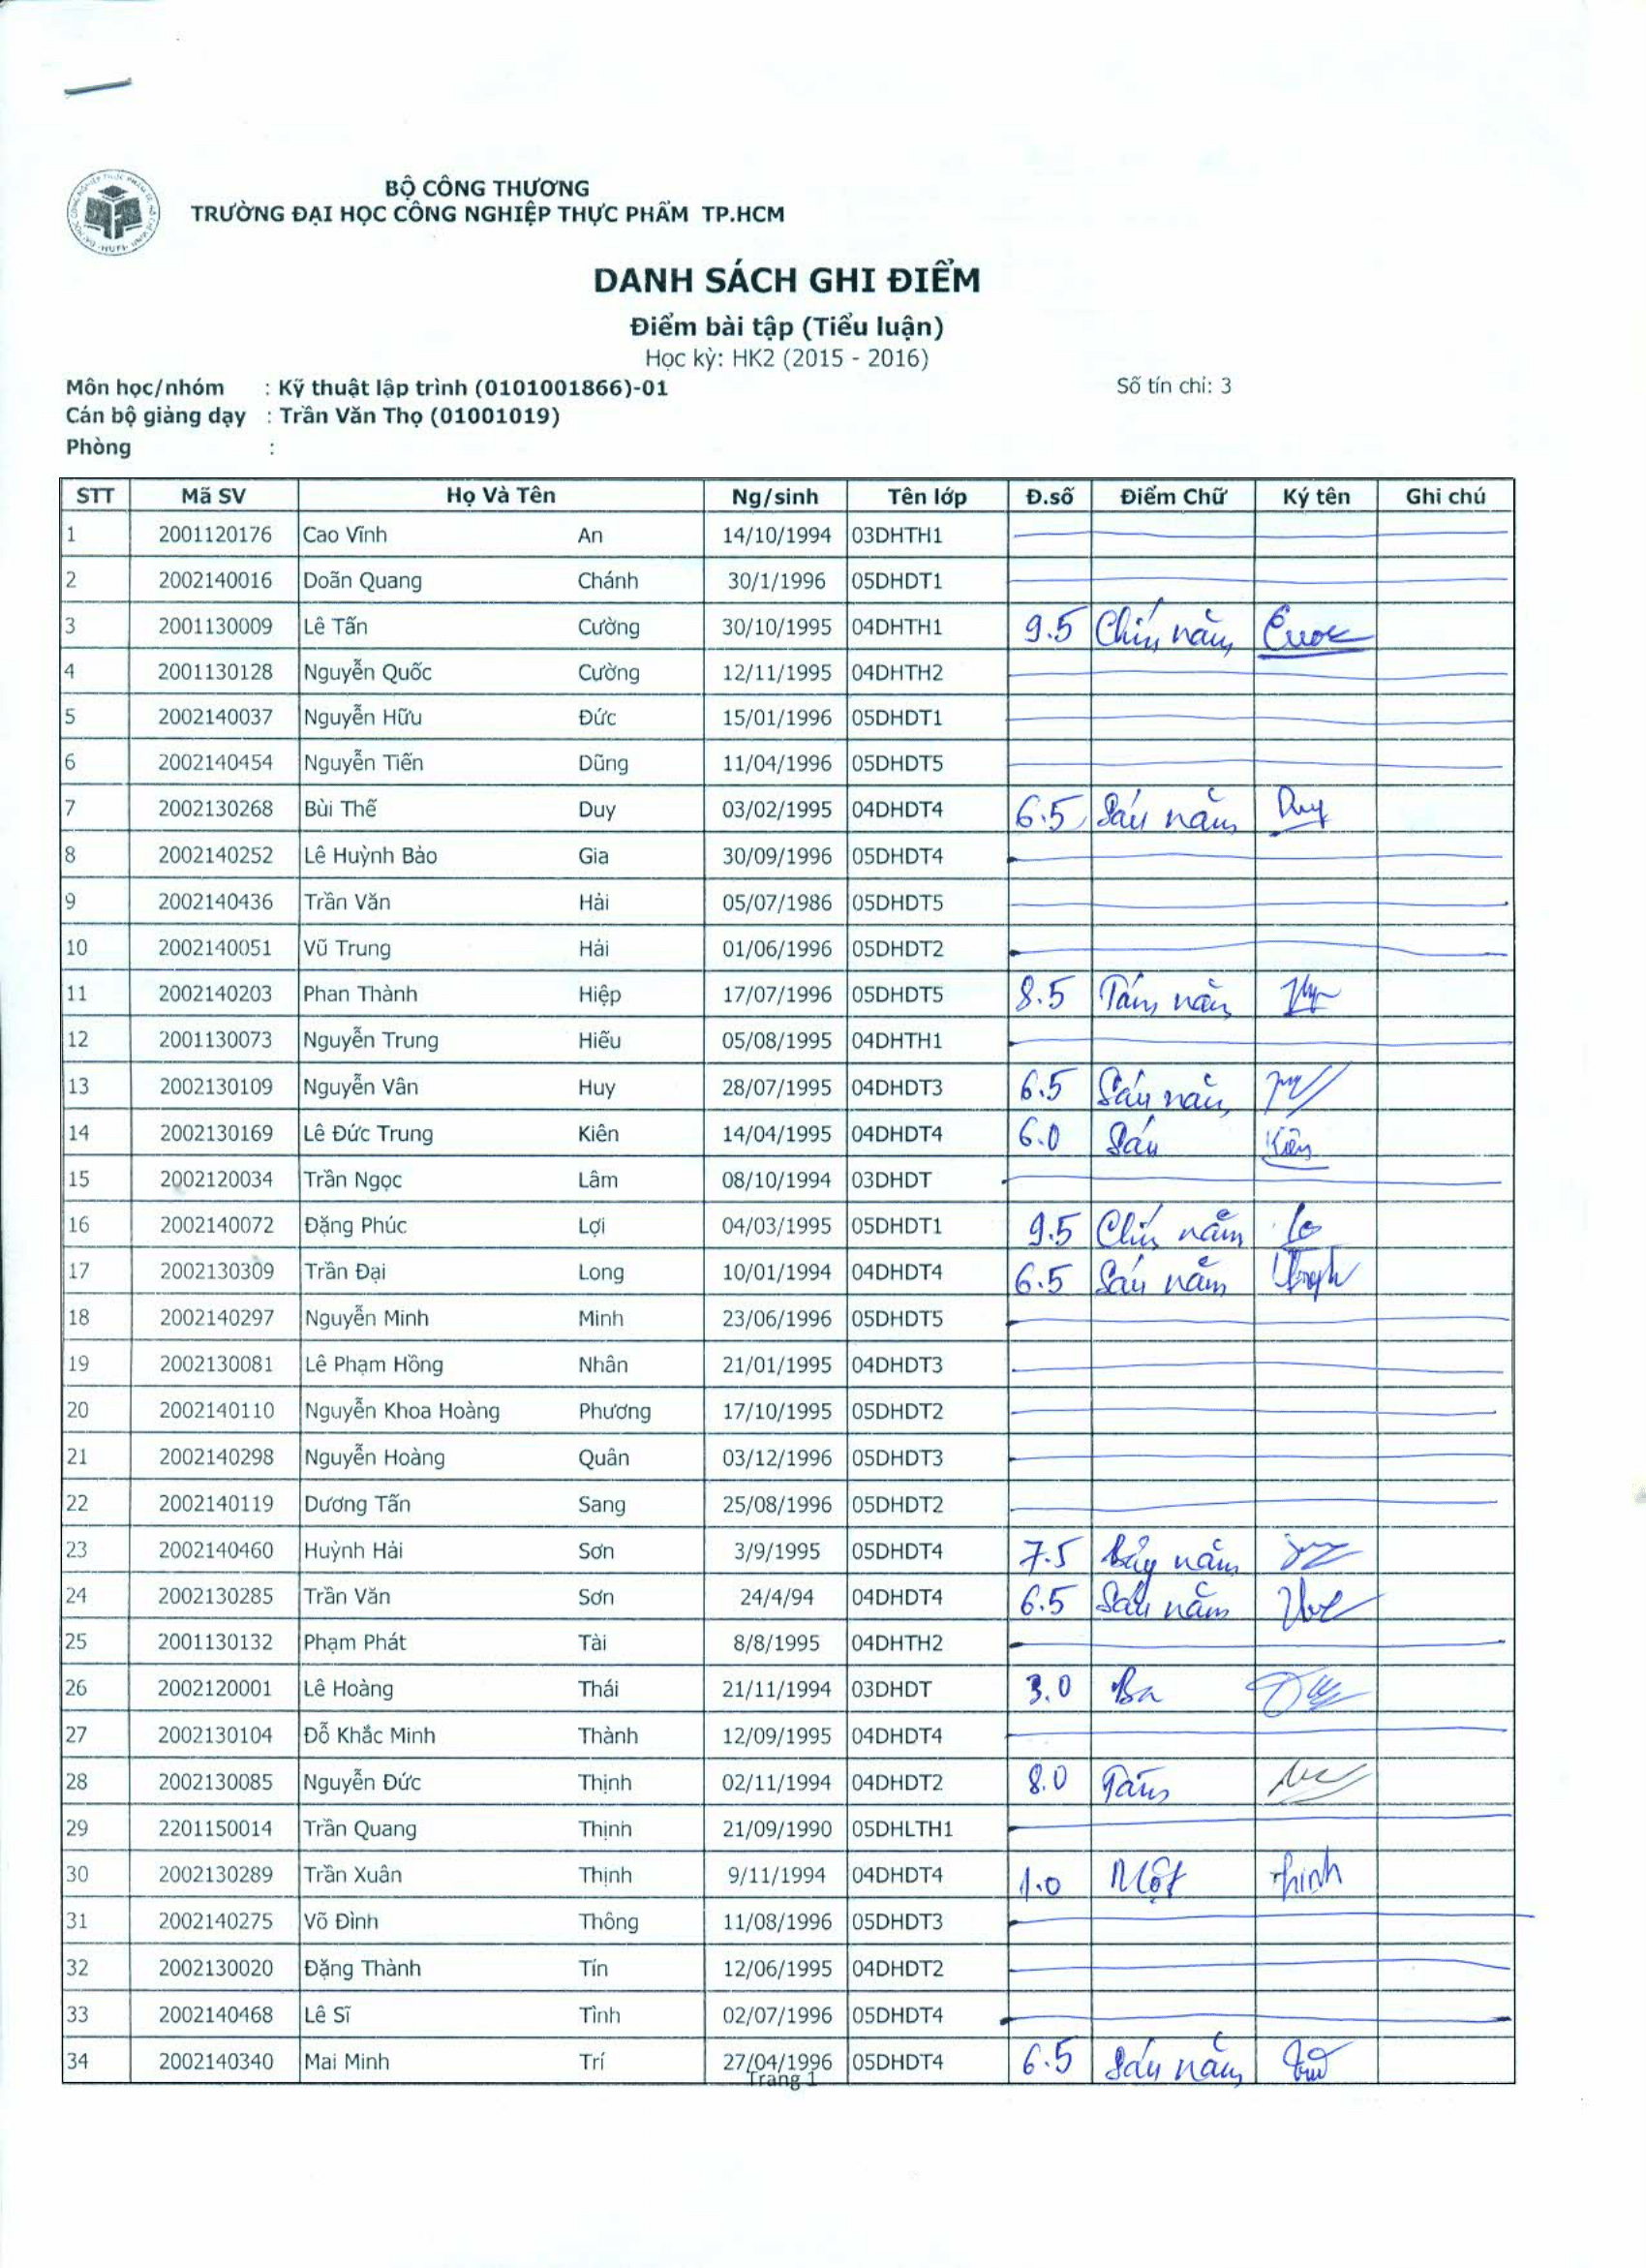 BỘ CÔNG THƯƠNG
TRƯỜNG ĐẠI HỌC CÔNG NGHIỆP THỰC PHẨM TP.HCM
DANH SÁCH GHI ĐIỂM
Điểm bài tập (Tiểu luận)
Học kỳ: HK2 (2015 - 2016)
Môn học/nhóm : Kỹ thuật lập trình (0101001866)-01 Số tín chỉ: 3
Cán bộ giảng dạy : Trần Văn Thọ (01001019)
Phòng :
STT Mã SV Họ Và Tên Ng/sinh Tên lớp Đ.số Điểm Chữ Ký tên Ghi chú
1 2001120176 Cao Vĩnh An 14/10/1994 03DHTH1
2 2002140016 Doãn Quang Chánh 30/1/1996 05DHDT1
3 2001130009 Lê Tấn Cường 30/10/1995 04DHTH1 9.5 Chín năm
4 2001130128 Nguyễn Quốc Cường 12/11/1995 04DHTH2
5 2002140037 Nguyễn Hữu Đức 15/01/1996 05DHDT1
6 2002140454 Nguyễn Tiến Dũng 11/04/1996 05DHDT5
7 2002130268 Bùi Thế Duy 03/02/1995 04DHDT4 6.5 Sáu năm Duy
8 2002140252 Lê Huỳnh Bảo Gia 30/09/1996 05DHDT4
9 2002140436 Trần Văn Hải 05/07/1986 05DHDT5
10 2002140051 Vũ Trung Hải 01/06/1996 05DHDT2
11 2002140203 Phan Thành Hiệp 17/07/1996 05DHDT5 8.5 Tám năm
12 2001130073 Nguyễn Trung Hiếu 05/08/1995 04DHTH1
13 2002130109 Nguyễn Vân Huy 28/07/1995 04DHDT3 6.5 Sáu năm
14 2002130169 Lê Đức Trung Kiên 14/04/1995 04DHDT4 6.0 Sáu Kiên
15 2002120034 Trần Ngọc Lâm 08/10/1994 03DHDT
16 2002140072 Đặng Phúc Lợi 04/03/1995 05DHDT1 9.5 Chín năm
17 2002130309 Trần Đại Long 10/01/1994 04DHDT4 6.5 Sáu năm
18 2002140297 Nguyễn Minh Minh 23/06/1996 05DHDT5
19 2002130081 Lê Phạm Hồng Nhân 21/01/1995 04DHDT3
20 2002140110 Nguyễn Khoa Hoàng Phương 17/10/1995 05DHDT2
21 2002140298 Nguyễn Hoàng Quân 03/12/1996 05DHDT3
22 2002140119 Dương Tấn Sang 25/08/1996 05DHDT2
23 2002140460 Huỳnh Hải Sơn 3/9/1995 05DHDT4 7.5 Bảy năm
24 2002130285 Trần Văn Sơn 24/4/94 04DHDT4 6.5 Sáu năm
25 2001130132 Phạm Phát Tài 8/8/1995 04DHTH2
26 2002120001 Lê Hoàng Thái 21/11/1994 03DHDT 3.0 Ba
27 2002130104 Đỗ Khắc Minh Thành 12/09/1995 04DHDT4
28 2002130085 Nguyễn Đức Thịnh 02/11/1994 04DHDT2 8.0 Tám
29 2201150014 Trần Quang Thịnh 21/09/1990 05DHLTH1
30 2002130289 Trần Xuân Thịnh 9/11/1994 04DHDT4 1.0 Một thinh
31 2002140275 Võ Đình Thông 11/08/1996 05DHDT3
32 2002130020 Đặng Thành Tín 12/06/1995 04DHDT2
33 2002140468 Lê Sĩ Tình 02/07/1996 05DHDT4
34 2002140340 Mai Minh Trí 27/04/1996 05DHDT4 6.5 Sáu năm
Trang 1